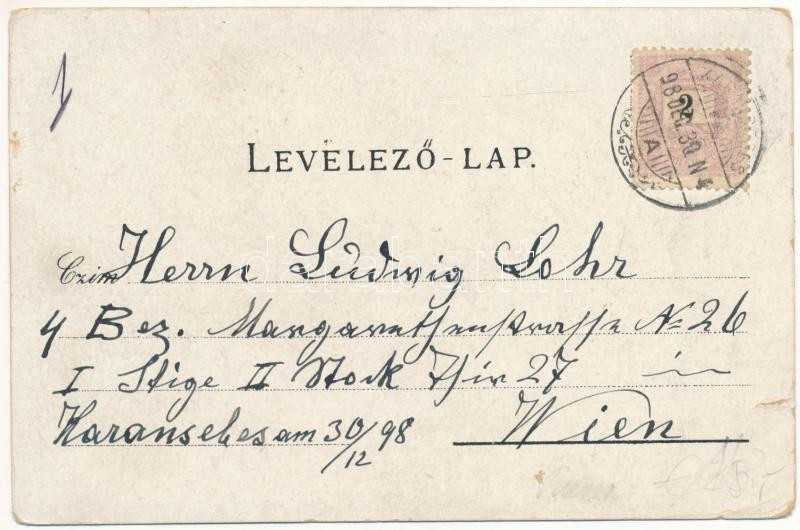 1
2
98 DEC. 30. N 4
A
LEVELEZŐ-LAP.
Czim Herrn Ludwig Lohr
4 Bez. Margarethenstrasse No 26
I Stige II Stock Thür 27 in
Karansebes am 30/12 98 Wien